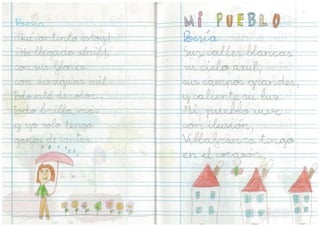 Poesía
¡Qué contenta estoy!
¡Ha llegado abril!,
con sus flores
con sus aguas mil.
Todo está de color.
todo brilla más
y yo solo tengo
ganas de cantar.
la la la
MI PUEBLO
Poesía
Sus calles blancas
su cielo azul,
sus campos grandes,
y caliente su luz.
Mi pueblo vive
con ilusión,
Villafranca tengo
en el corazón.